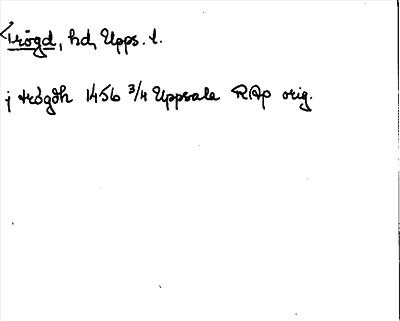 Trögd, hd, Upps. l.
j trögdh 1456 3/4 Uppsala RAp orig.